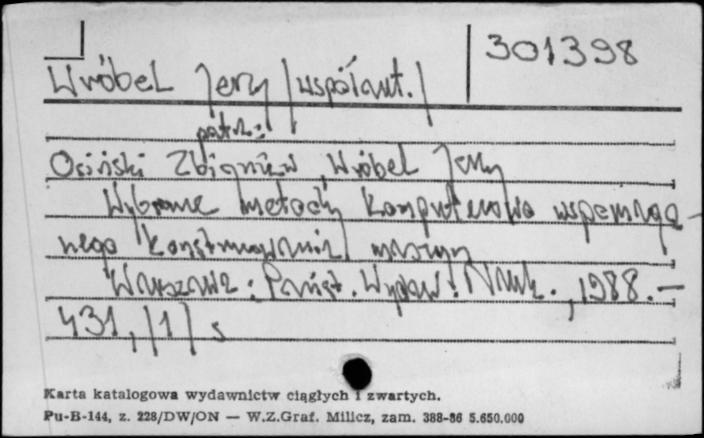 301398
Wróbel Jerzy /współaut./
patrz:
Osiński Zbigniew, Wróbel Jerzy
Wybrane metody komputerowo wspomaga-
nego konstruowania maszyn
Warszawa: Państ. Wydaw. Nauk., 1988. –
431, /1/ s
Karta katalogowa wydawnictw ciągłych i zwartych.
Pu-B-144, z. 228/DW/ON — W.Z.Graf. Milicz, zam. 388-86 5.650.000